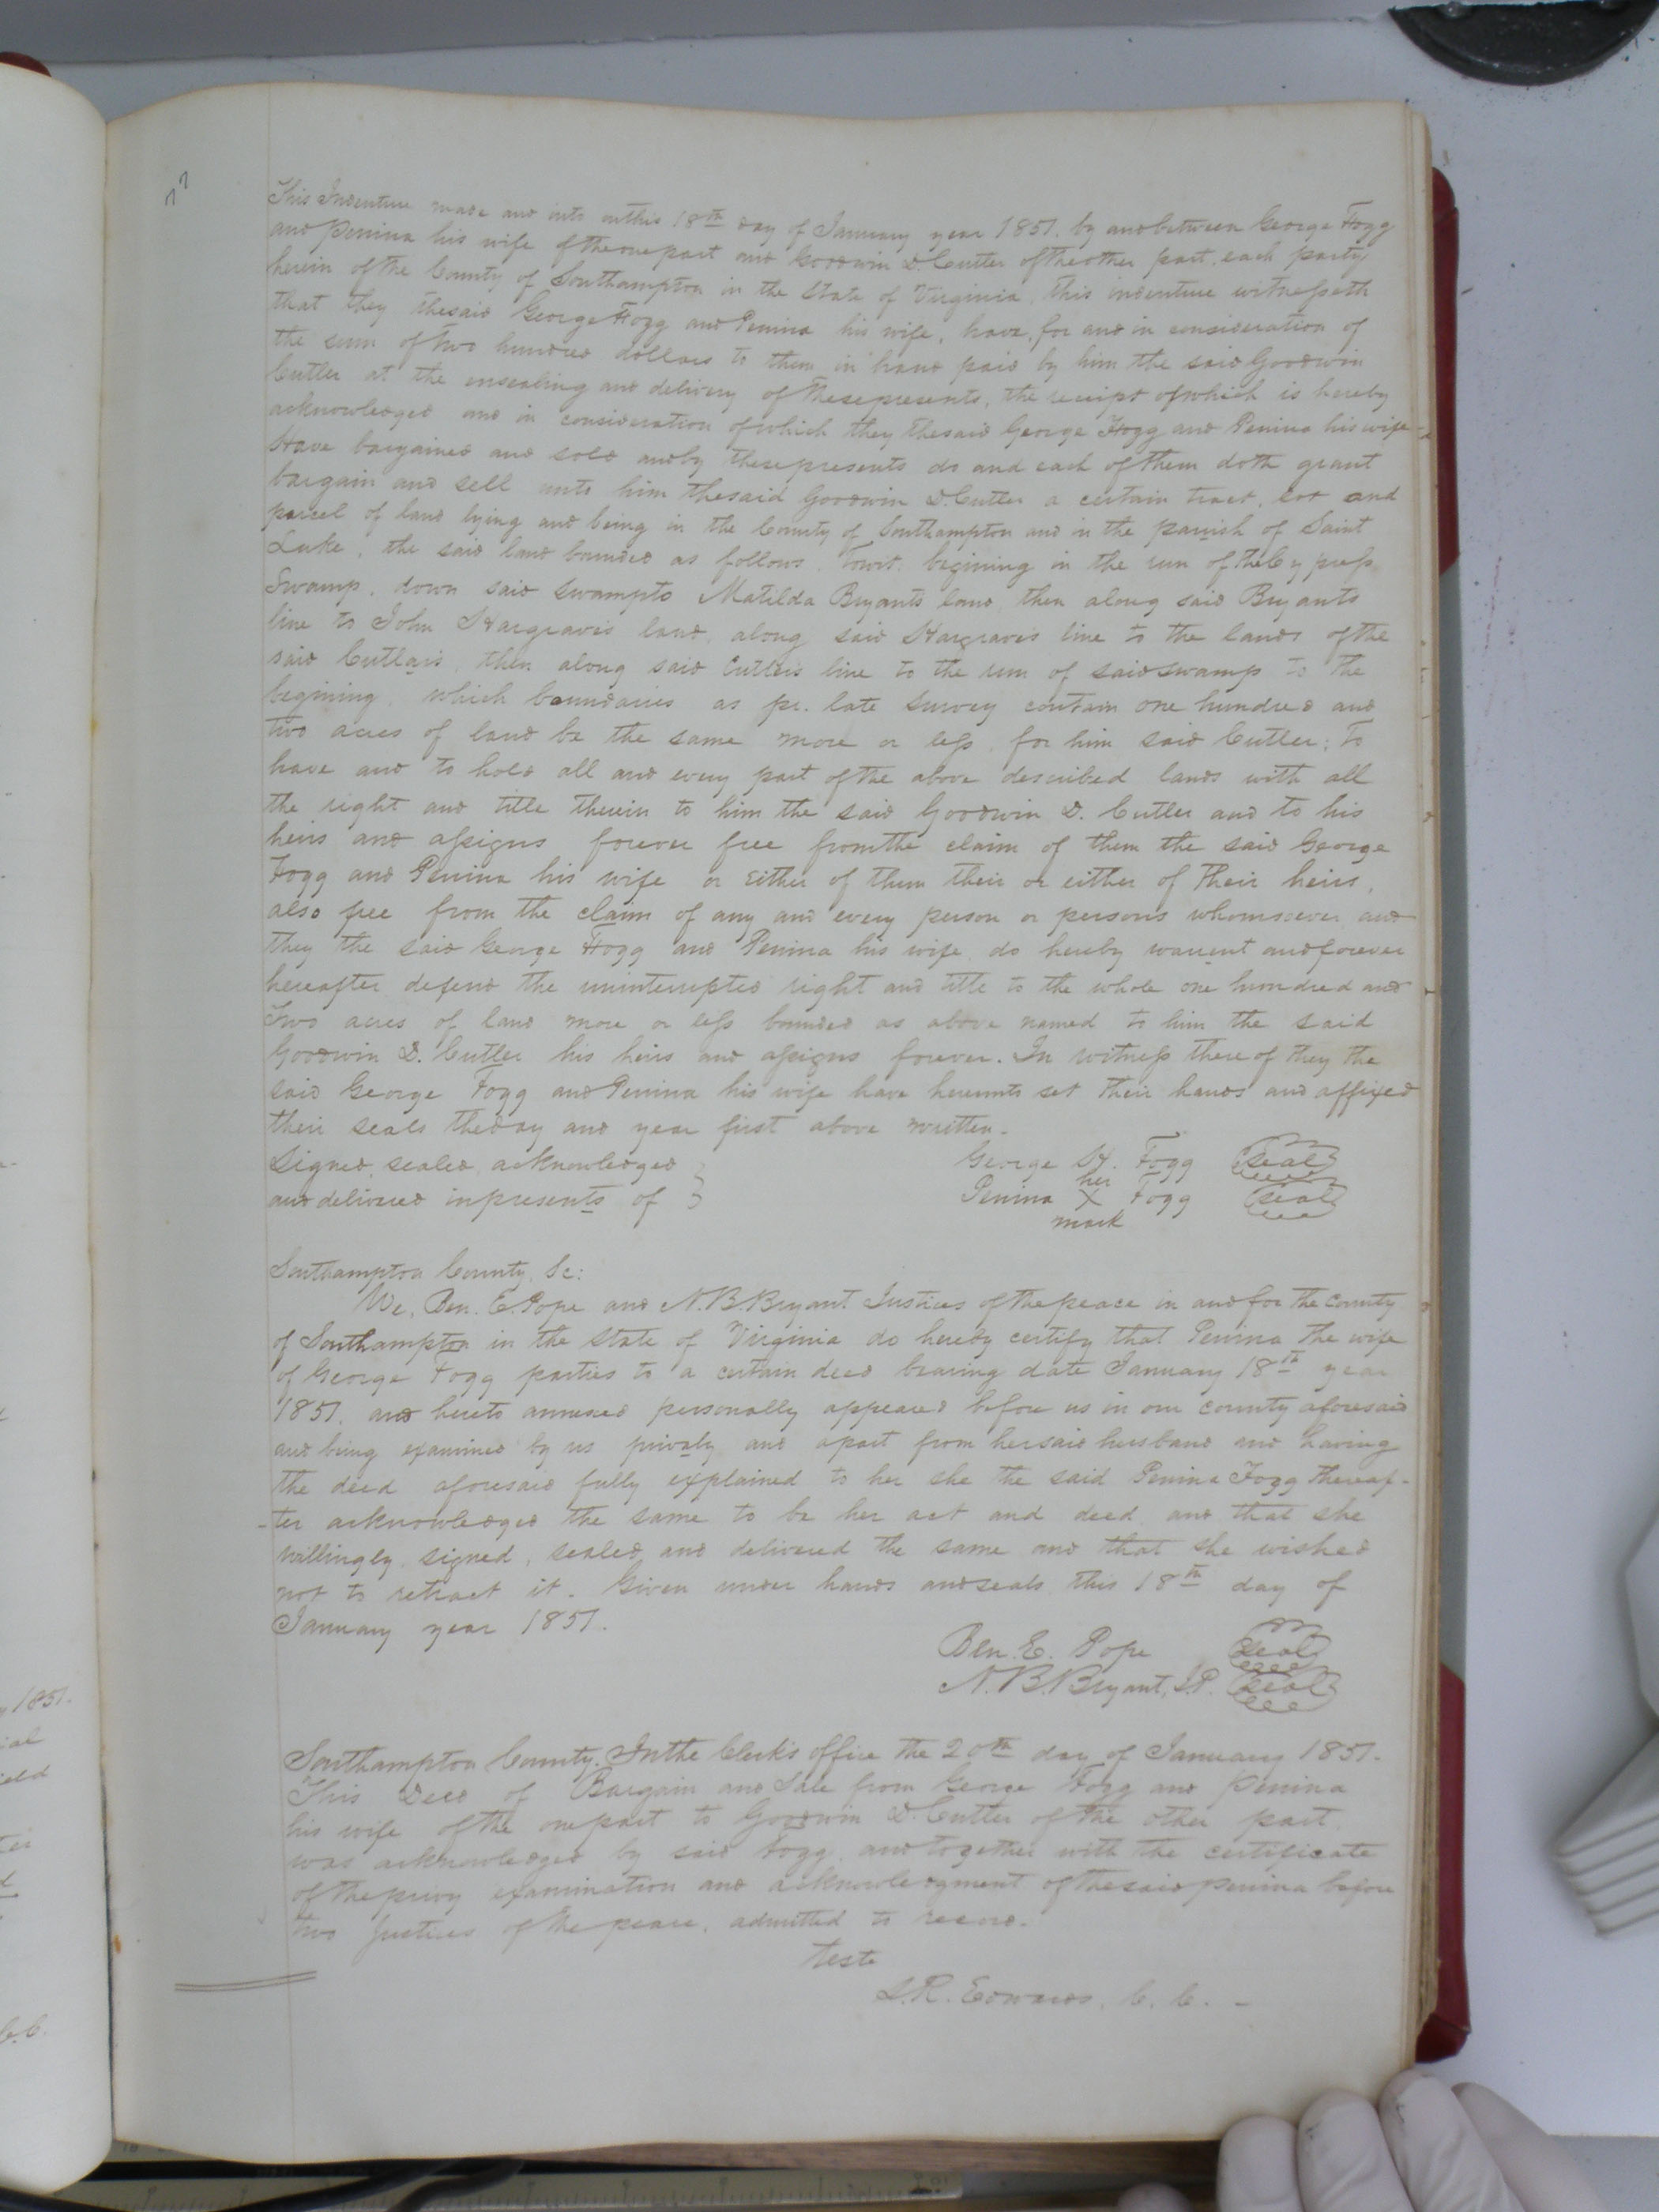 This Indenture made and into onthis 18th day of January year 1851. by and between George Fogg
and Penina his wife of the one part and Goodwin D. Cutler of the other part, each party
herein of the County of Southampton in the State of Virginia, this indenture witnesseth
that they the said George Fogg and Penina his wife, have, for and in consideration of
the sum of two hundred dollars to them in hand paid by him the said Goodwin
Cutler at the ensealing and delivery of these presents, the receipt of which is hereby
acknowledged and in consideration of which they the said George Fogg and Penina his wife
Have bargained and sold and by these presents do and each of them doth grant
bargain and sell unto him the said Goodwin D. Cutler a certain tract, lot and
parcel of land lying and being in the County of Southampton and in the parish of Saint
Luke, the said land bounded as follows. Towit, begining in the run of the Cypress
Swamp, down said swamp to Matilda Bryants land, then along said Bryants
line to John Hargraves land, along said Hargraves line to the lands of the
said Cutlars, then along said Cutlers line to the run of said swamp to the
begining, which boundaries as pr. late survey contain one hundred and
two acres of land be the same more or less, for him said Cutler; To
have and to hold all and every part of the above described lands with all
the right and title therein to him the said Goodwin D. Cutler and to his
heirs and assigns forever free from the claim of them the said George
Fogg and Penina his wife or either of them their or either of their heirs,
also free from the claim of any and every person or persons whomsoever and
they the said George Fogg and Penina his wife do hereby warrent and forever
hereafter defend the uninterrupted right and title to the whole one hundred and
Two acres of land more or less bounded as above named to him the said
Goodwin D. Cutler his heirs and assigns forever. In witness there of they the
said George Fogg and Penina his wife have hereunto set their hands and affixed
their seals the day and year first above written.
Signed, sealed, acknowledged } George H. Fogg (seal)
and delivered in presents of } Penina her X mark Fogg (seal)
Southampton County, Sc:
We, Ben. E. Pope and N. B. Bryant Justices of the peace in and for the county
of Southampton in the state of Virginia do hereby certify that Penina the wife
of George Fogg parties to a certain deed bearing date January 18th year
1851. and hereto annexed personally appeared before us in our county aforesaid
and being examined by us privaly and apart from her said husband and having
the deed aforesaid fully explained to her she the said Penina Fogg thereaf-
-ter acknowledged the same to be her act and deed, and that she
willingly, signed, sealed and delivered the same and that she wished
not to retract it. Given under hands and seals this 18th day of
January year 1851.
Ben. E. Pope (seal)
N. B. Bryant, J.P. (seal)
Southampton County. In the Clerk's office the 20th day of January 1851.
This Deed of Bargain and Sale from George Fogg and Penina
his wife of the one part to Goodwin D. Cutler of the other part,
was acknowledged by said Fogg, and together with the certificate
of the privy examination and acknowledgment of the said Penina before
two Justices of the peace, admitted to record.
Teste
L. R. Edwards, C. C.